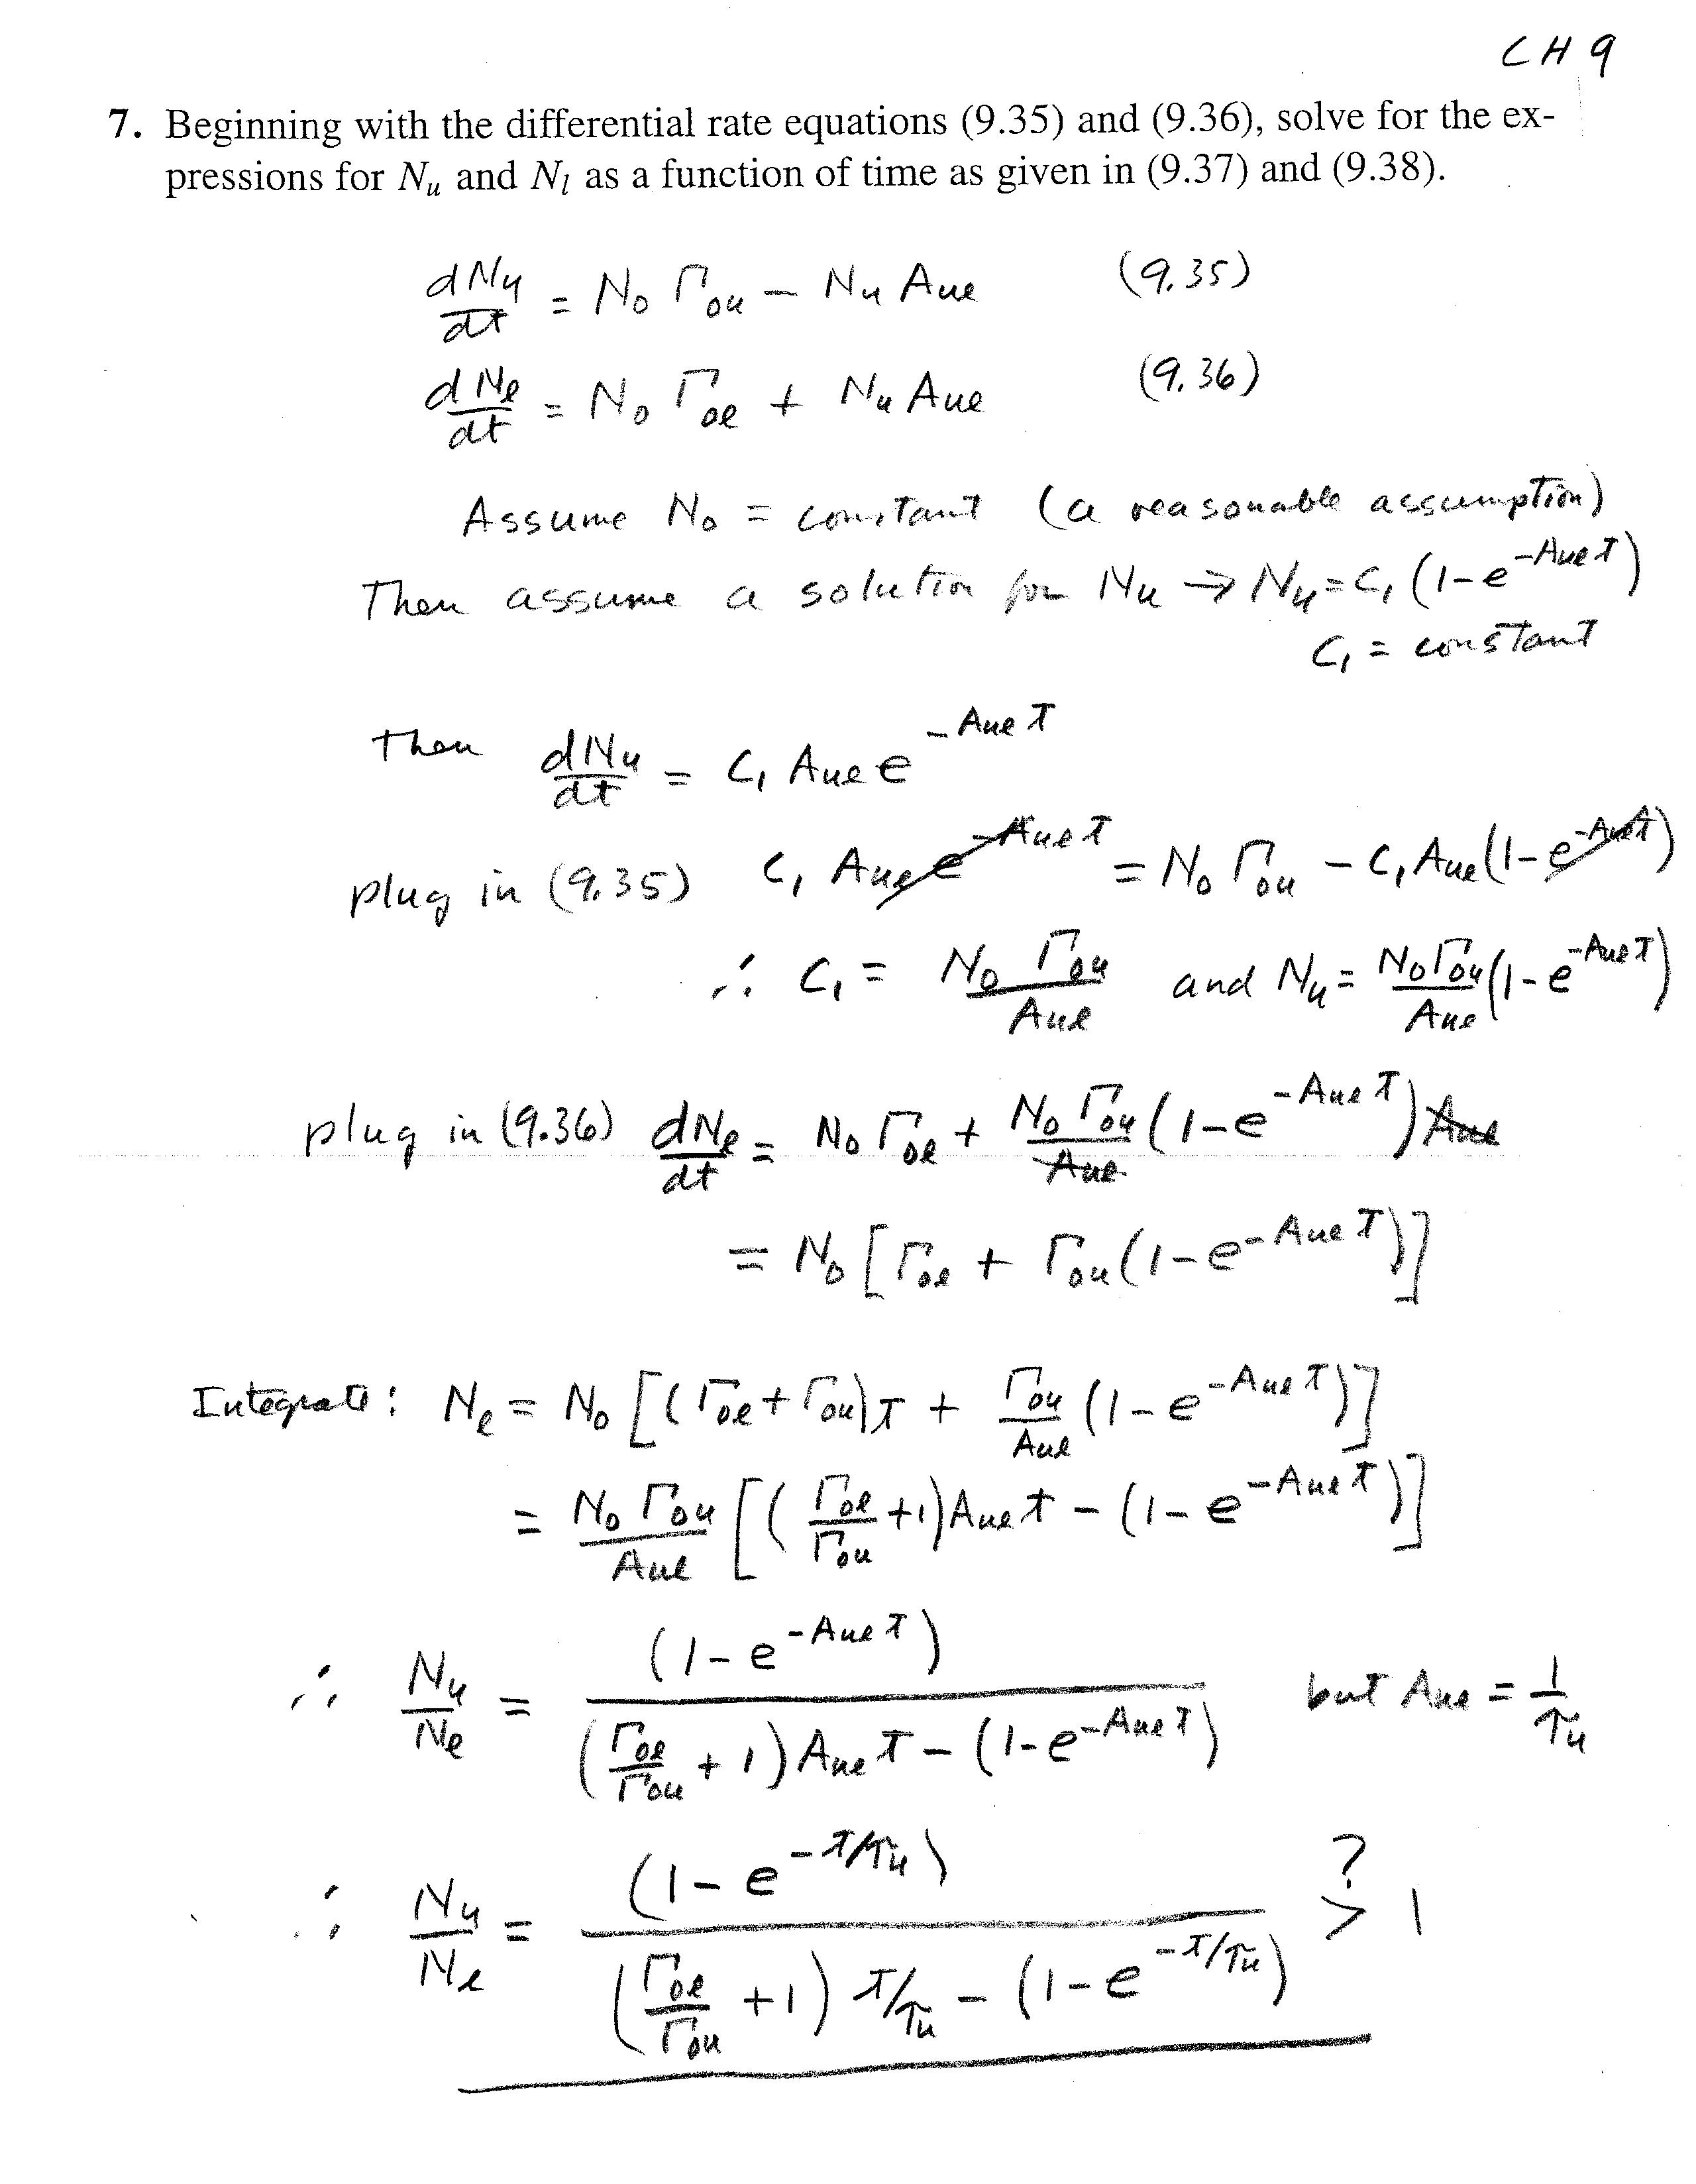 CH 9
7. Beginning with the differential rate equations (9.35) and (9.36), solve for the ex-
pressions for N_u and N_l as a function of time as given in (9.37) and (9.38).
dN_u/dt = N_0 Γ_0u − N_u A_ul (9.35)
dN_l/dt = N_0 Γ_0l + N_u A_ul (9.36)
Assume N_0 = constant (a reasonable assumption)
Then assume a solution for N_u → N_u = C_1 (1 − e^(−A_ul t))
C_1 = constant
then dN_u/dt = C_1 A_ul e^(−A_ul t)
plug in (9.35) C_1 A_ul e^(−A_ul t) = N_0 Γ_0u − C_1 A_ul (1 − e^(−A_ul t))
∴ C_1 = N_0 Γ_0u / A_ul and N_u = N_0 Γ_0u / A_ul (1 − e^(−A_ul t))
plug in (9.36) dN_l/dt = N_0 Γ_0l + N_0 Γ_0u / A_ul (1 − e^(−A_ul t)) A_ul
= N_0 [Γ_0l + Γ_0u (1 − e^(−A_ul t))]
Integrate: N_l = N_0 [(Γ_0l + Γ_0u) t + Γ_0u / A_ul (1 − e^(−A_ul t))]
= N_0 Γ_0u / A_ul [(Γ_0l / Γ_0u + 1) A_ul t − (1 − e^(−A_ul t))]
∴ N_u / N_l = (1 − e^(−A_ul t)) / ((Γ_0l / Γ_0u + 1) A_ul t − (1 − e^(−A_ul t))) but A_ul = 1/τ_u
∴ N_u / N_l = (1 − e^(−t/τ_u)) / ((Γ_0l / Γ_0u + 1) t/τ_u − (1 − e^(−t/τ_u))) ?> 1